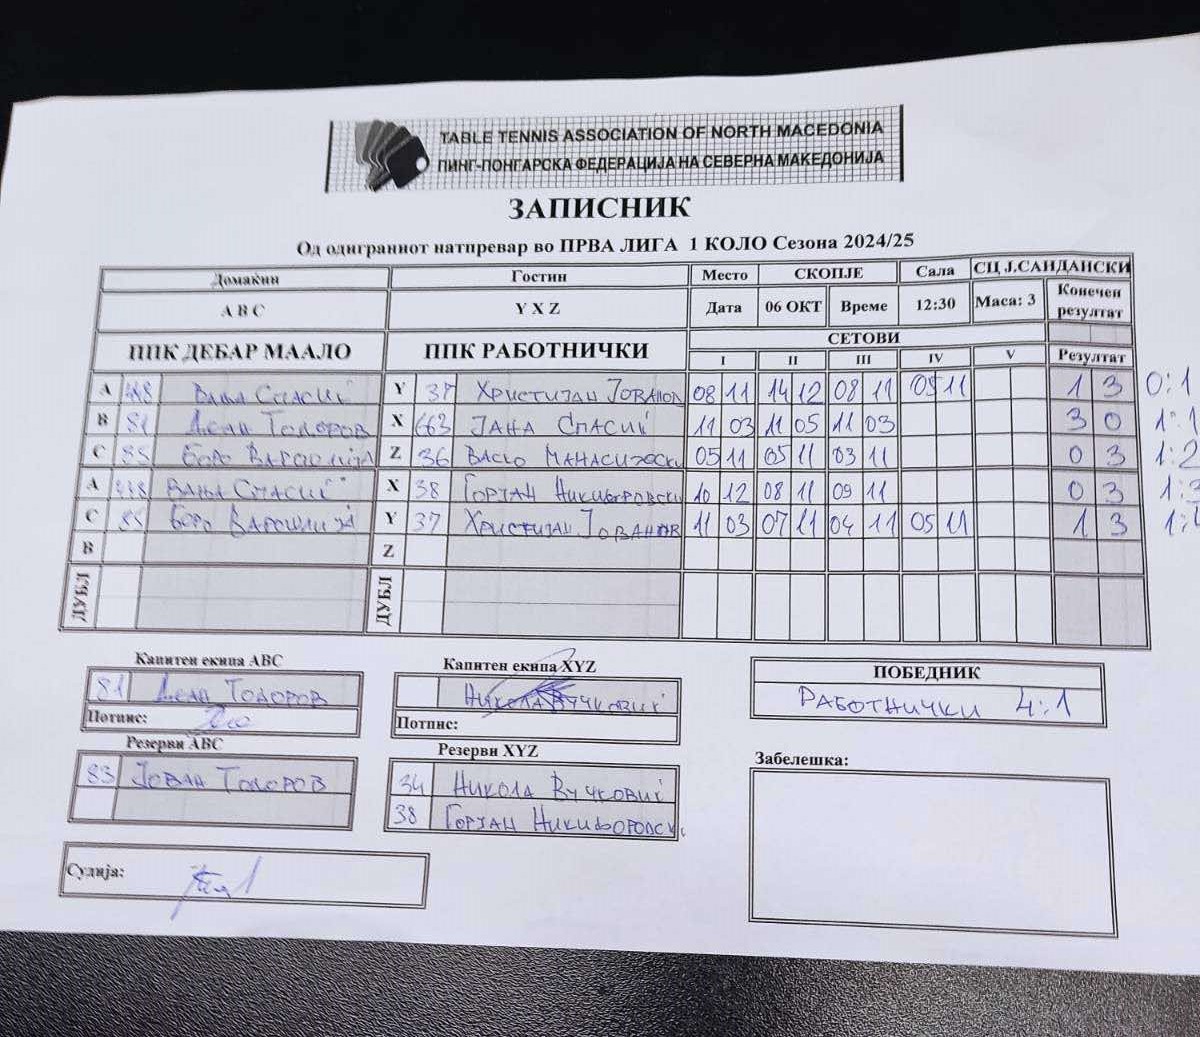 TABLE TENNIS ASSOCIATION OF NORTH MACEDONIA
ПИНГ-ПОНГАРСКА ФЕДЕРАЦИЈА НА СЕВЕРНА МАКЕДОНИЈА
ЗАПИСНИК
Од одиграниот натпревар во ПРВА ЛИГА 1 КОЛО Сезона 2024/25
Домаќин Гостин Место СКОПЈЕ Сала СЦ Ј.САНДАНСКИ
A B C Y X Z Дата 06 ОКТ Време 12:30 Маса: 3 Конечен резултат
ППК ДЕБАР МААЛО ППК РАБОТНИЧКИ СЕТОВИ
I II III IV V Резултат
A Вања Спасиќ Y 37 Христијан Јованов 08 11 14 12 08 11 09 11 1 3 0:1
B 81 Деан Тодоров X 663 Јана Спасиќ 11 03 11 05 11 03 3 0 1:1
C 85 Боро Варошлија Z 36 Васко Манасијоски 05 11 05 11 03 11 0 3 1:2
A Вања Спасиќ X 38 Горјан Никифоровски 10 12 08 11 09 11 0 3 1:3
C 85 Боро Варошлија Y 37 Христијан Јованов 11 03 07 11 04 11 05 11 1 3
B Z
ДУБЛ ДУБЛ
Капитен екипа ABC Капитен екипа XYZ ПОБЕДНИК
81 Деан Тодоров Никола Вучковиќ РАБОТНИЧКИ 4:1
Потпис: Потпис:
Резерви ABC Резерви XYZ Забелешка:
83 Јован Тодоров 34 Никола Вучковиќ
38 Горјан Никифоровски
Судија: